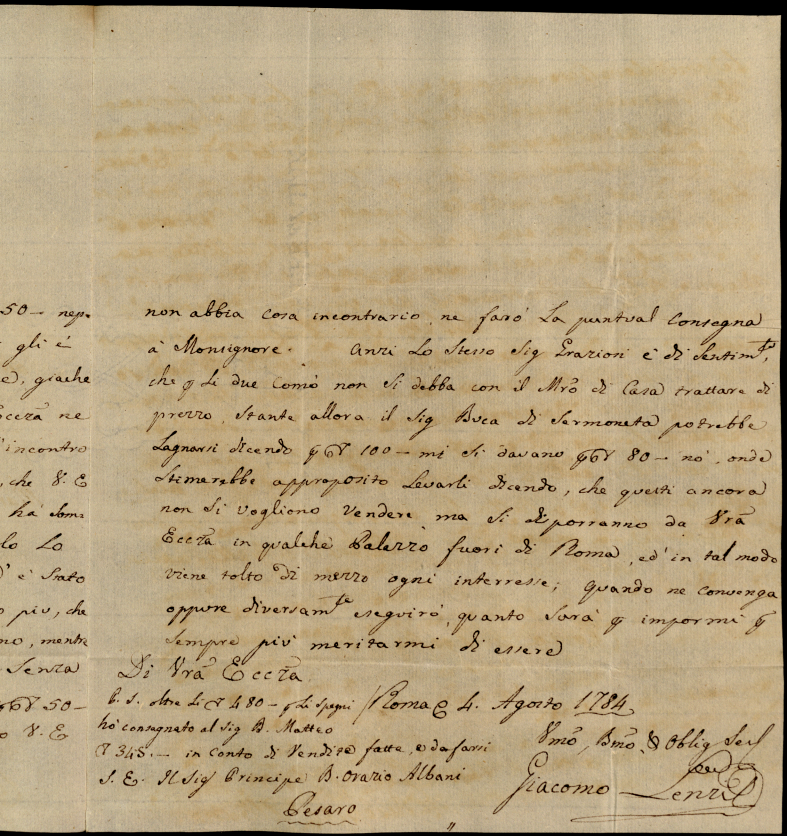 50 — nep.
gli è
e, giache
Eccza ne
incontro
, che V. E
ha som:
lo Lo
è Stato
piu, che
no, mentre
Senza
50 —
V. E
non abbia cosa incontrario, ne farò La puntual Consegna
à Monsignore. Anzi Lo Stesso Sig Graziosi è di Sentimto,
che p Li due Comò non Si debba con il Mro di Casa trattare di
prezzo, Stante allora il Sig Duca di Sermoneta potrebbe
Lagnarsi dicendo p 100 — mi Si davano p 80 — nò, onde
Stimerebbe approposito Levarli dicendo, che questi ancora
non Si vogliono Vendere, ma Si disporranno da Vrã
Eccza in qualche Palazzo fuori di Roma, ed' in tal modo
viene tolto di mezzo ogni interresse; quando ne convenga
oppure diversamte eseguirò, quanto Sarà p impormi p
Sempre più meritarmi di essere
Di Vrã Eccza
P. S. oltre Li 480 — p Li Spegni / Roma 4. Agosto 1784
hò consegnato al Sig D. Matteo
348. — in Conto di Vendite fatte, e da farsi
Vmõ, Dmõ, & Oblig Ser
S. E. Il Sig Principe D. Orazio Albani
Giacomo Lenzi
Pesaro